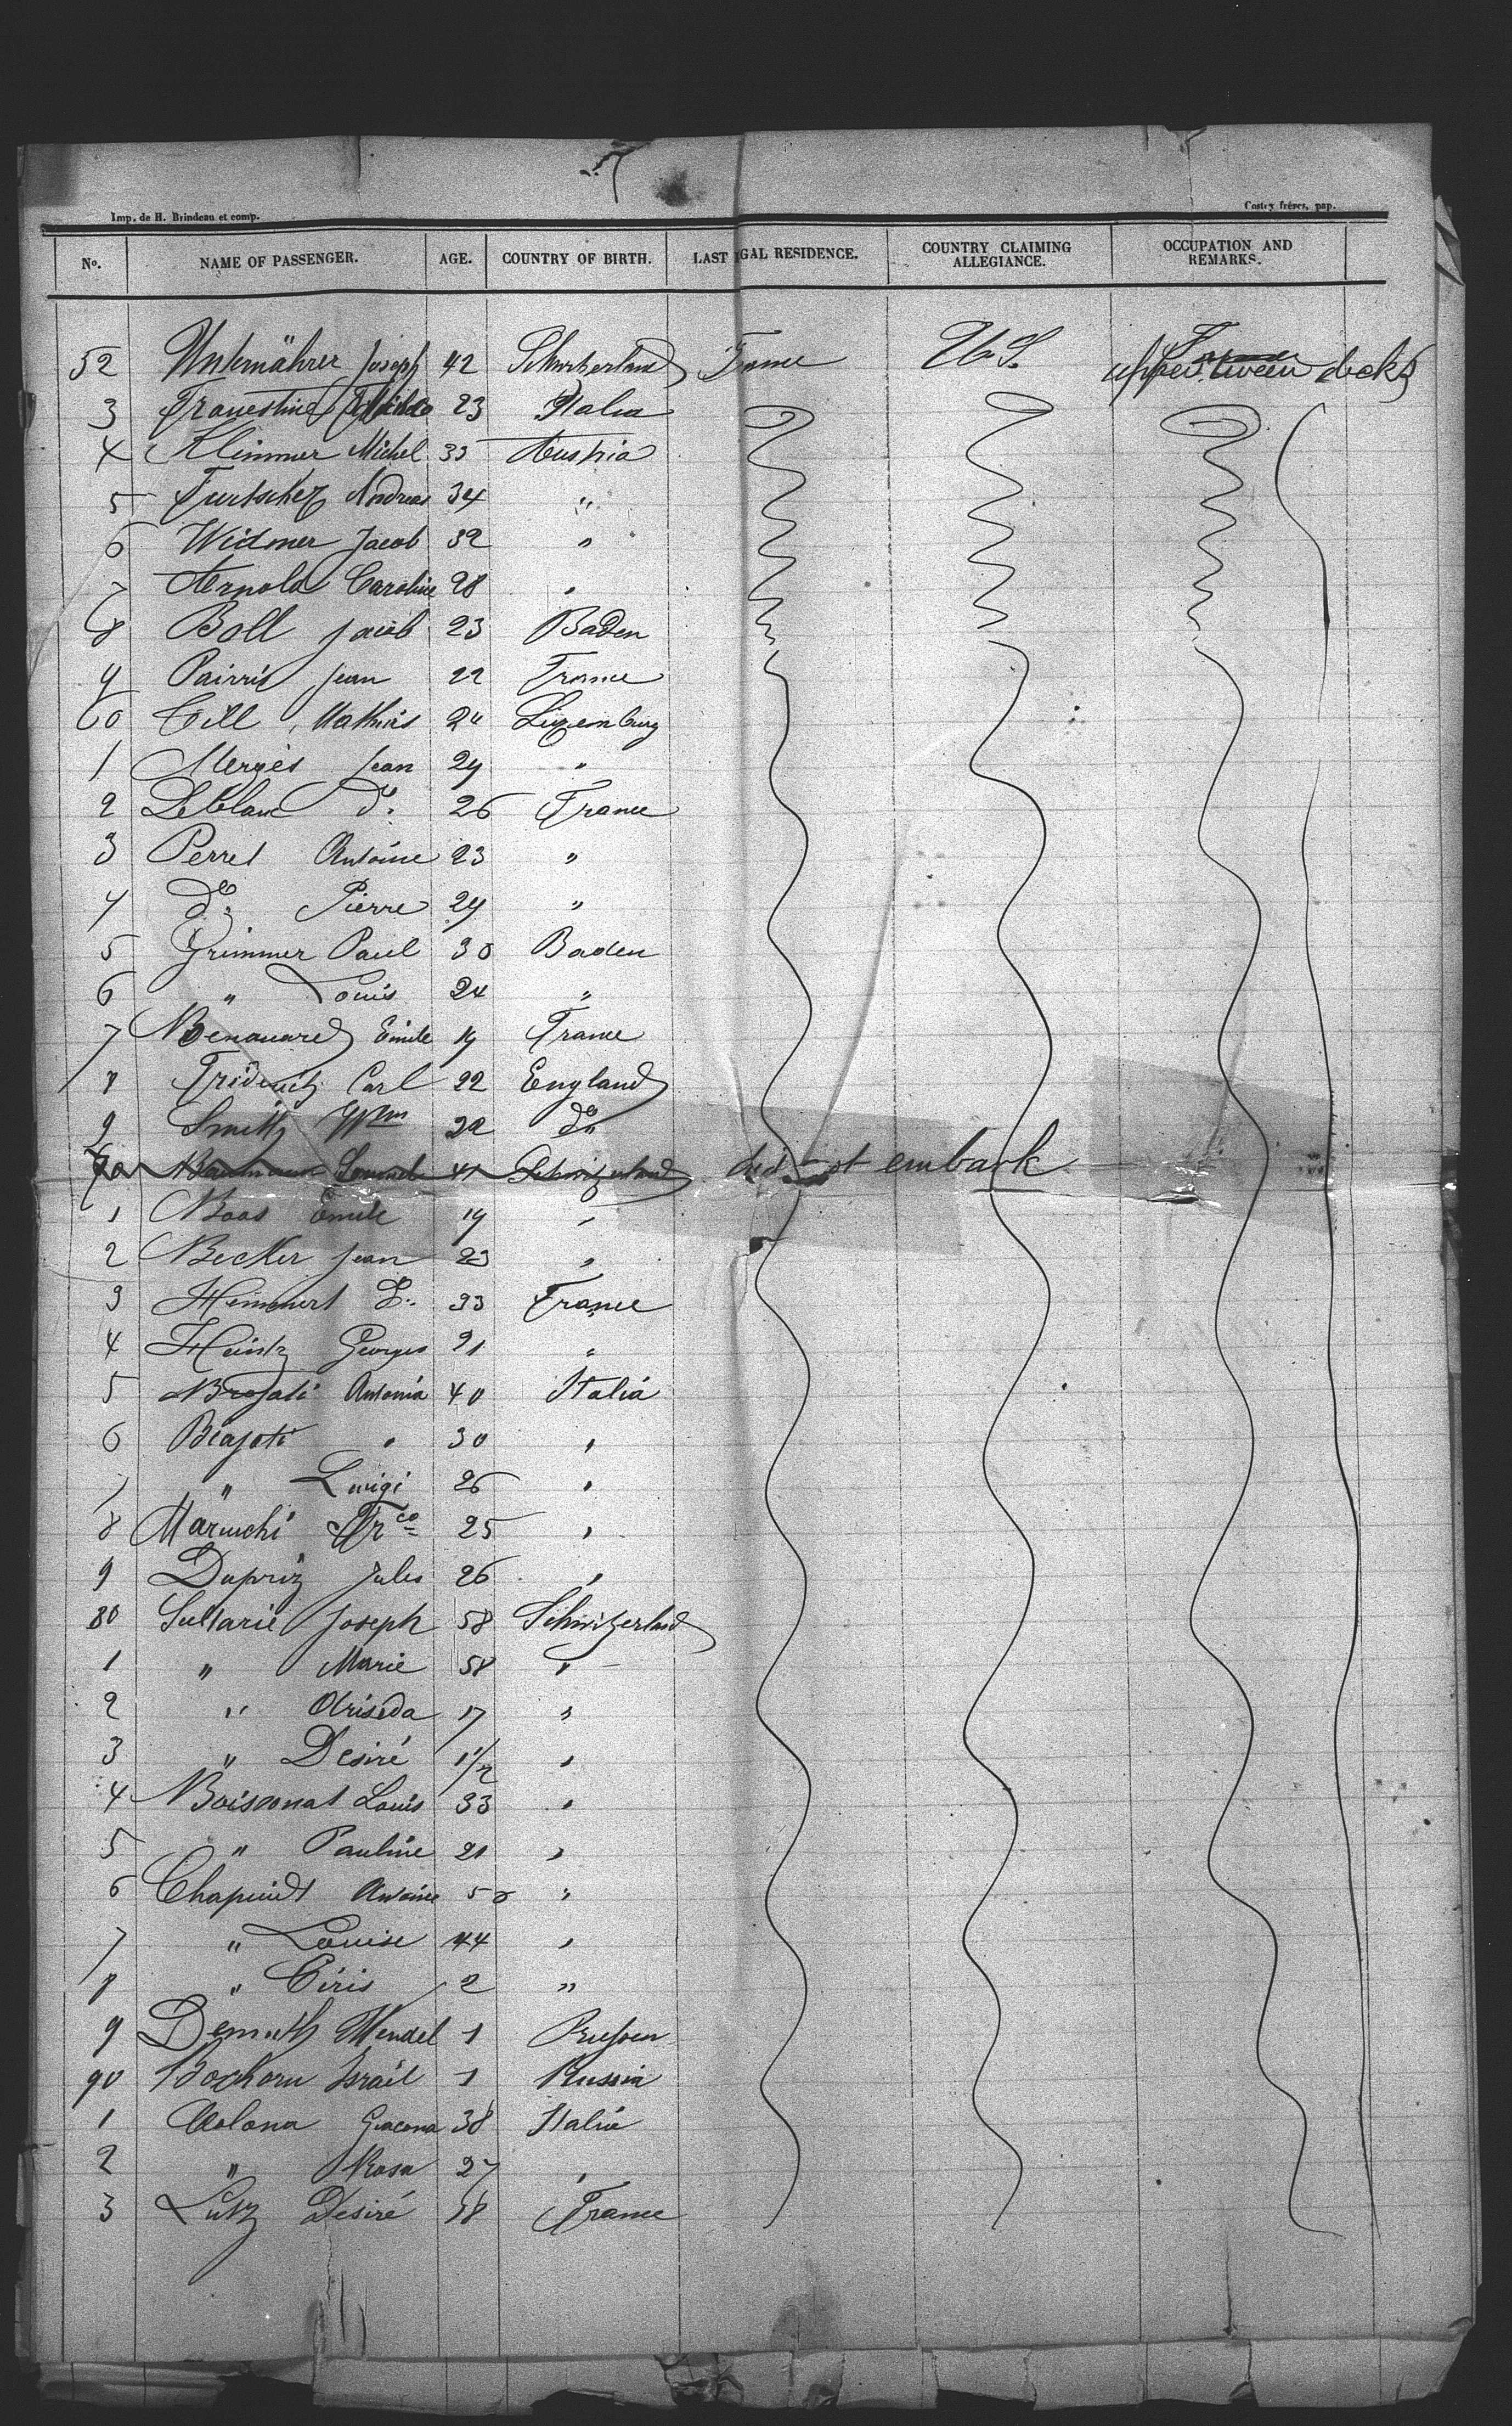 7
Imp. de H. Brindeau et comp. Costey frères, pap.
No. NAME OF PASSENGER. AGE. COUNTRY OF BIRTH. LAST GAL RESIDENCE. COUNTRY CLAIMING ALLEGIANCE. OCCUPATION AND REMARKS.
52 Unternährer Joseph 42 Schwitzerland France U. S. upper tween decks
3 23 Italia
4 Klimmer Michel 35 Austria
5 Furtscher Andreas 34 "
6 Widmer Jacob 32 "
7 Arnold Caroline 28 "
8 Boll Jacob 23 Baden
9 Pairris Jean 22 France
60 Cill Mathias 24 Luxemburg
1 Mergès Jean 29 "
2 Leblanc do. 26 France
3 Perret Antoine 23 "
4 do. Pierre 29 "
5 Grimmer Paul 30 Baden
6 " Louis 24 "
7 Benouard Emile 19 France
8 Carl 22 England
9 Smith Wm 22 do
70 41 Schwitzerland did not embark
1 Boos Emile 19 "
2 Becker Jean 23 "
3 Hemmert L. 33 France
4 Heintz Georges 21 "
5 Brofati Antonia 40 Italia
6 Biajoti " 30 "
7 " Luigi 26 "
8 Maruchi Frco 25 "
9 Dupriz Jules 26 "
80 Sultarie Joseph 58 Schwitzerland
1 " Marie 58 "
2 " Oriseda 17 "
3 " Desiré 1 1/2 "
4 Boissonat Louis 33 "
5 " Pauline 21 "
6 Chapuidt Antoine 50 "
7 " Louise 44 "
8 " Ciris 2 "
9 Demuth Wendel 1 Preussen
90 Bockorn Israël 1 Russia
1 Colona Giacoma 38 Italia
2 " Rosa 27 "
3 Lutz Desiré 18 France